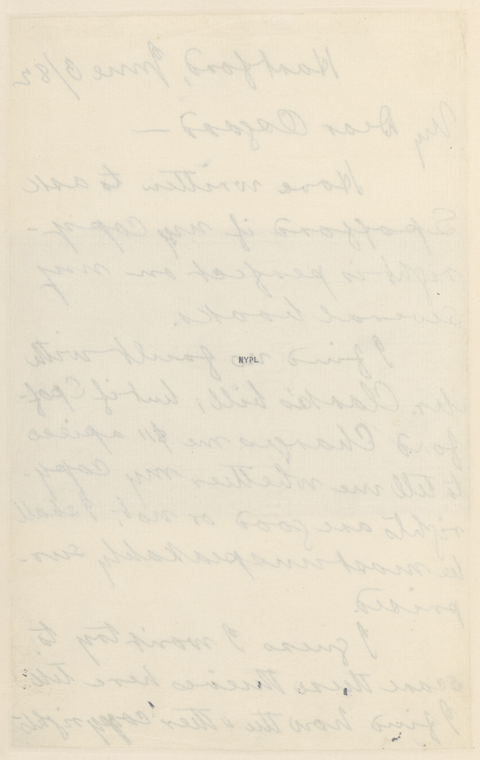 Hartford, June 3/82
My Dear Osgood —
Have written to ask
Spofford if my copy-
right is perfect on my
several books.
I find no fault with
Mr. Clark's bill, but if Spof-
ford charges me $11 apiece
to tell me whether my copy-
rights are good or not, I shall
be most unspeakably sur-
prised.
I guess I won't try to
scare these thieves here till
I find how the other copyright
NYPL